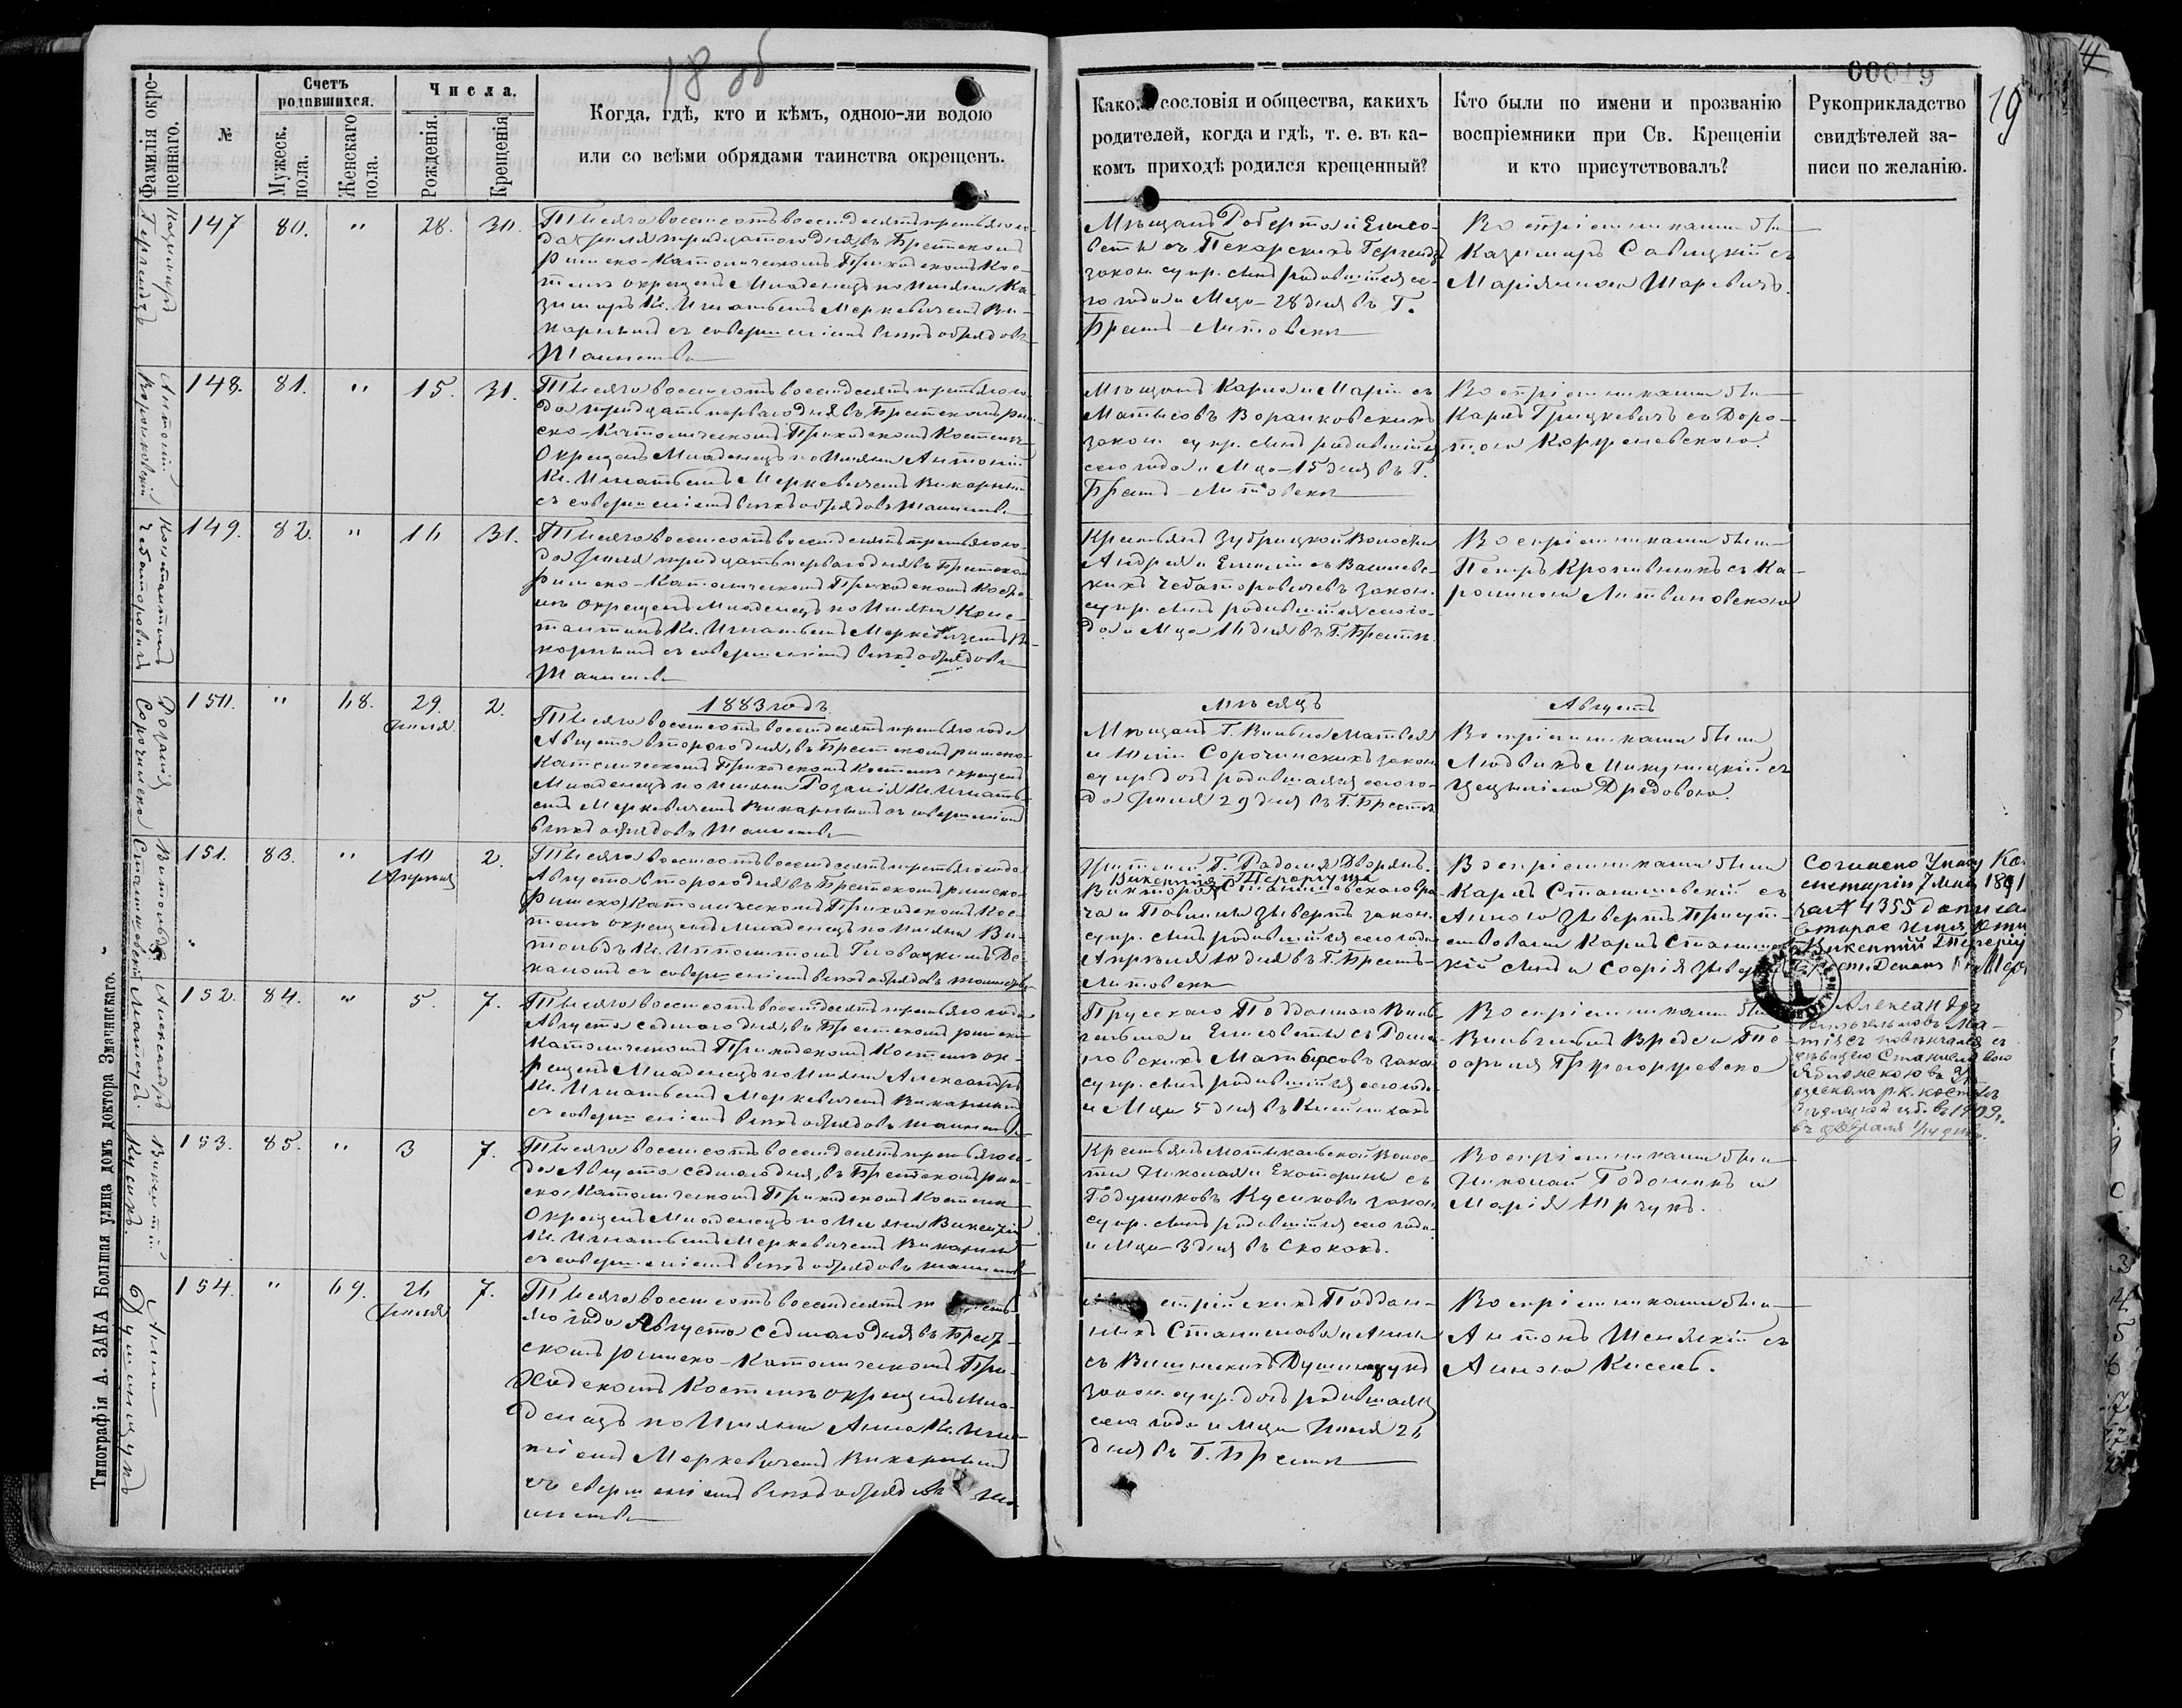 18 об
00019
19
Фамилія окре-
щеннаго.
№
Счетъ
родившихся.
Мужеск.
пола.
Женскаго
пола.
Числа.
Рожденія.
Крещенія
Когда, гдѣ, кто и кѣмъ, одною-ли водою
или со всѣми обрядами таинства окрещенъ.
сословія и общества, какихъ
родителей, когда и гдѣ, т. е. въ ка-
комъ приходѣ родился крещенный?
Кто были по имени и прозванію
воспріемники при Св. Крещеніи
и кто присутствовалъ?
Рукоприкладство
свидѣтелей за-
писи по желанію.
Казимиръ
147
80.
"
28.
30.
Тысяча восемьсотъ восемдесятъ третьяго го-
да Іюля тридцатого дня въ Брестскомъ
Римско-Католическомъ Приходскомъ Кос-
телѣ окрещенъ Младенецъ по Имяни Ка-
зимиръ Кс. Игнатіемъ Меркевичемъ Ви-
карнымъ съ совершеніемъ всѣхъ обрядовъ
Таинства
Мѣщанъ Роберта и Елиса-
веты съ Пекарскихъ
закон. супр. сынъ родившійся се-
го года и Мца 28 дня въ Г.
Брестъ-Литовскѣ
Воспріемниками были
Казимиръ Савицкій съ
Маріянною Шаревичъ.
Антоній
Воронковскій
148.
81.
"
15.
31.
Тысяча восемьсотъ восемдесятъ третьяго го-
да тридцать перваго дня въ Брестскомъ Рим-
ско-Католическомъ Приходскомъ Костелѣ
Окрещенъ Младенецъ по Имяни Антоній
Кс. Игнатіемъ Меркевичемъ Викарнымъ
съ совершеніемъ всѣхъ обрядовъ таинства
Мѣщанъ Карла и Маріи съ
Матысовъ Воранковскихъ
закон. супр. сынъ родившійся
сего года и Мца 15 дня въ Г.
Брестъ-Литовскѣ
Воспріемниками были
Карлъ Грицкевичъ съ Доро-
тою
Константинъ
Чеботоровичъ
149.
82.
"
16
31.
Тысяча восемьсотъ восемдесятъ третьяго го-
да Іюля тридцать перваго дня въ Брестскомъ
Римско-Католическомъ Приходскомъ Косте-
лѣ окрещенъ Младенецъ по Имяни Конс-
тантинъ Кс. Игнатіемъ Меркевичемъ Ви-
карнымъ съ совершеніемъ всѣхъ обрядовъ
Таинства
Крестьянъ Волости
Андрея и съ
кихъ Чебаторовичевъ закон.
супр. сынъ родившійся сего го-
да и Мца 16 дня въ Г. Брестѣ.
Воспріемниками были
Петръ Кропивникъ съ Ка-
ролиною Литвиновскою
Розалія
Сорочинска
150.
"
68.
29.
Іюля
2.
1883 годъ
Тысяча восемьсотъ восемдесятъ третьяго года
Августа второго дня, въ Брестскомъ римско-
Католическомъ Приходскомъ Костелѣ окрещенъ
Младенецъ по Имяни Розалія Кс. Игнаті-
емъ Меркевичемъ Викарнымъ съ совершеніемъ
всѣхъ обрядовъ Таинства
Мѣсяцъ
Мѣщанъ Г. Вильно Матвея
и Юліи Сорочинскихъ закон
супр. дочь родившаяся сего го-
да Іюля 29 дня въ Г. Брестѣ
Августъ
Воспріемниками были
Людвикъ Микульцкій съ
Цецилією Дредовою.
Витольдъ
Станишевскій
151.
83.
"
10
Апрѣля
2.
Тысяча восемьсотъ восемдесятъ третьяго года
Августа второго дня въ Брестскомъ римско-
(Римско) Католическомъ Приходскомъ Кос-
телѣ окрещенъ Младенецъ по Имяни Ви-
тольдъ Кс. Ипполитомъ Гловацкимъ Де-
каномъ съ совершеніемъ всѣхъ обрядовъ таинства
Жителей Г. Радомя Дворянъ
Викентія
Виктора Станишевскаго вра-
ча и Павлины Зывертъ закон.
супр. сынъ родившійся сего года
Апрѣля 10 дня въ Г. Брестъ-
Литовскѣ
Воспріемниками были
Карлъ Станишевскій съ
Анною Зывертъ Присут-
ствовали Карлъ
кій сынъ и Софія
Согласно Указу
7 Мая 1891
за № 4355
второе Имя
Викентій
Александръ
Матысъ.
152.
84.
"
5.
7.
Тысяча восемьсотъ восемдесятъ третьяго года
Августа седмого дня, въ Брестскомъ римско
Католическомъ Приходскомъ Костелѣ ок-
рещенъ Младенецъ по Имяни Александръ
Кс. Игнатіемъ Меркевичемъ Викарнымъ
съ совершеніемъ всѣхъ обрядовъ таинства
Прусскаго Подданаго Виль-
гельма и Елисаветы съ
Матысовъ закон
супр. сынъ родившійся сего года
и Мца 5 дня въ
Воспріемниками были
Вильгельмъ Вреде и Те-
офиля
Александръ
Вильгельмовъ Ма-
тысъ повѣнчался съ
дѣвицею
р.к. костелѣ
губ. въ 1909г.
февраля 1/14 дня.
Викентій
Кусикъ.
153.
85.
"
3
7.
Тысяча восемьсотъ восемдесятъ третьяго го-
да Августа седмого дня, въ Брестскомъ рим-
ско, Католическомъ Приходскомъ Костелѣ
Окрещенъ Младенецъ по Имяни Викентій
Кс. Игнатіемъ Меркевичемъ Викарнымъ
съ совершеніемъ всѣхъ обрядовъ таинства
Крестьянъ Мотыкальской Волос-
ти Николая и Екатерины съ
Кусиковъ закон
супр. сынъ родившійся сего года
и Мца 3 дня въ Скокахъ.
Воспріемниками были
Николай и
Марія
Анна
154.
"
69.
26
Іюля
7.
Тысяча восемьсотъ восемдесятъ треть-
яго года Августа седмого дня въ Брест-
скомъ римско-Католическомъ При-
ходскомъ Костелѣ окрещенъ Мла-
денецъ по Имяни Анна Кс. Игна-
тіемъ Меркевичемъ Викарнымъ
съ совершеніемъ всѣхъ обрядовъ Та-
инства
стрійскихъ Поддан-
ныхъ Станислава и Анны
съ Вишнскихъ
закон. супр. дочь родившаяся
сего года и Мца Іюля 26
дня въ Г. Брестѣ
Воспріемниками были
Антонъ съ
Анною Кисель.
Типографія А. ЗАКА Большая улица домъ доктора Змачинскаго.